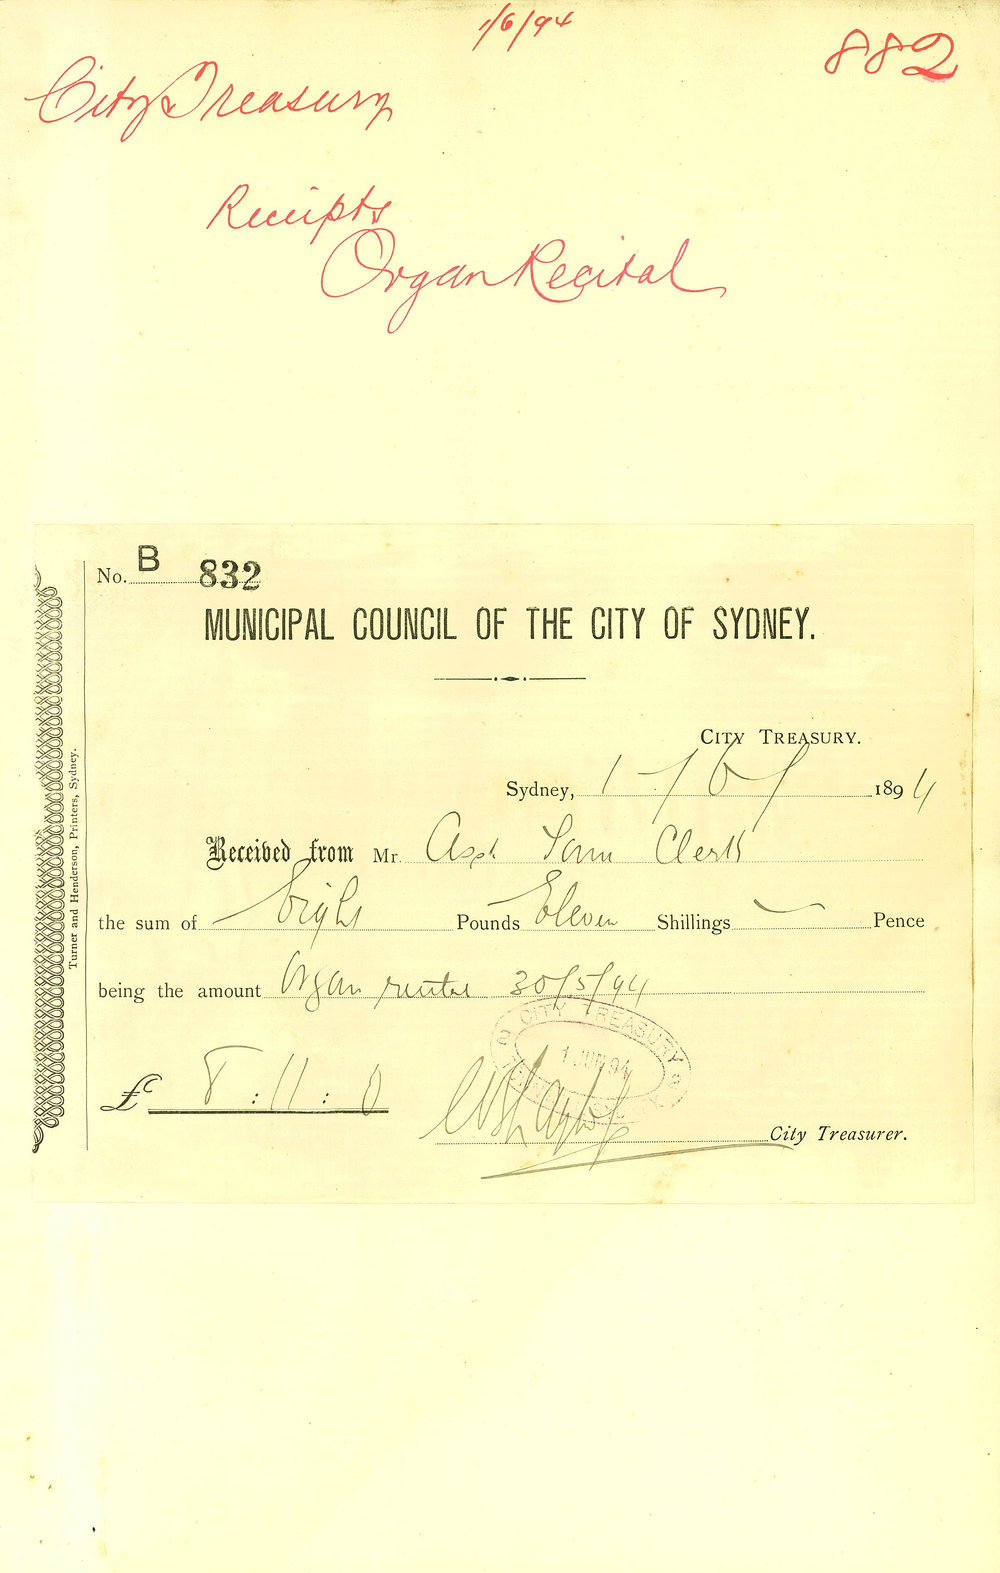 1/6/94
882
City Treasury
Receipts
Organ Recital
No. B 832
MUNICIPAL COUNCIL OF THE CITY OF SYDNEY.
CITY TREASURY.
Sydney, 1/6/ 1894
Received from Mr. Asst. Town Clerk
the sum of Eight Pounds Eleven Shillings — Pence
being the amount Organ recital 30/5/94
£ 8 : 11 : 0
CITY TREASURY
1 JUN 94
City Treasurer.
Turner and Henderson, Printers, Sydney.